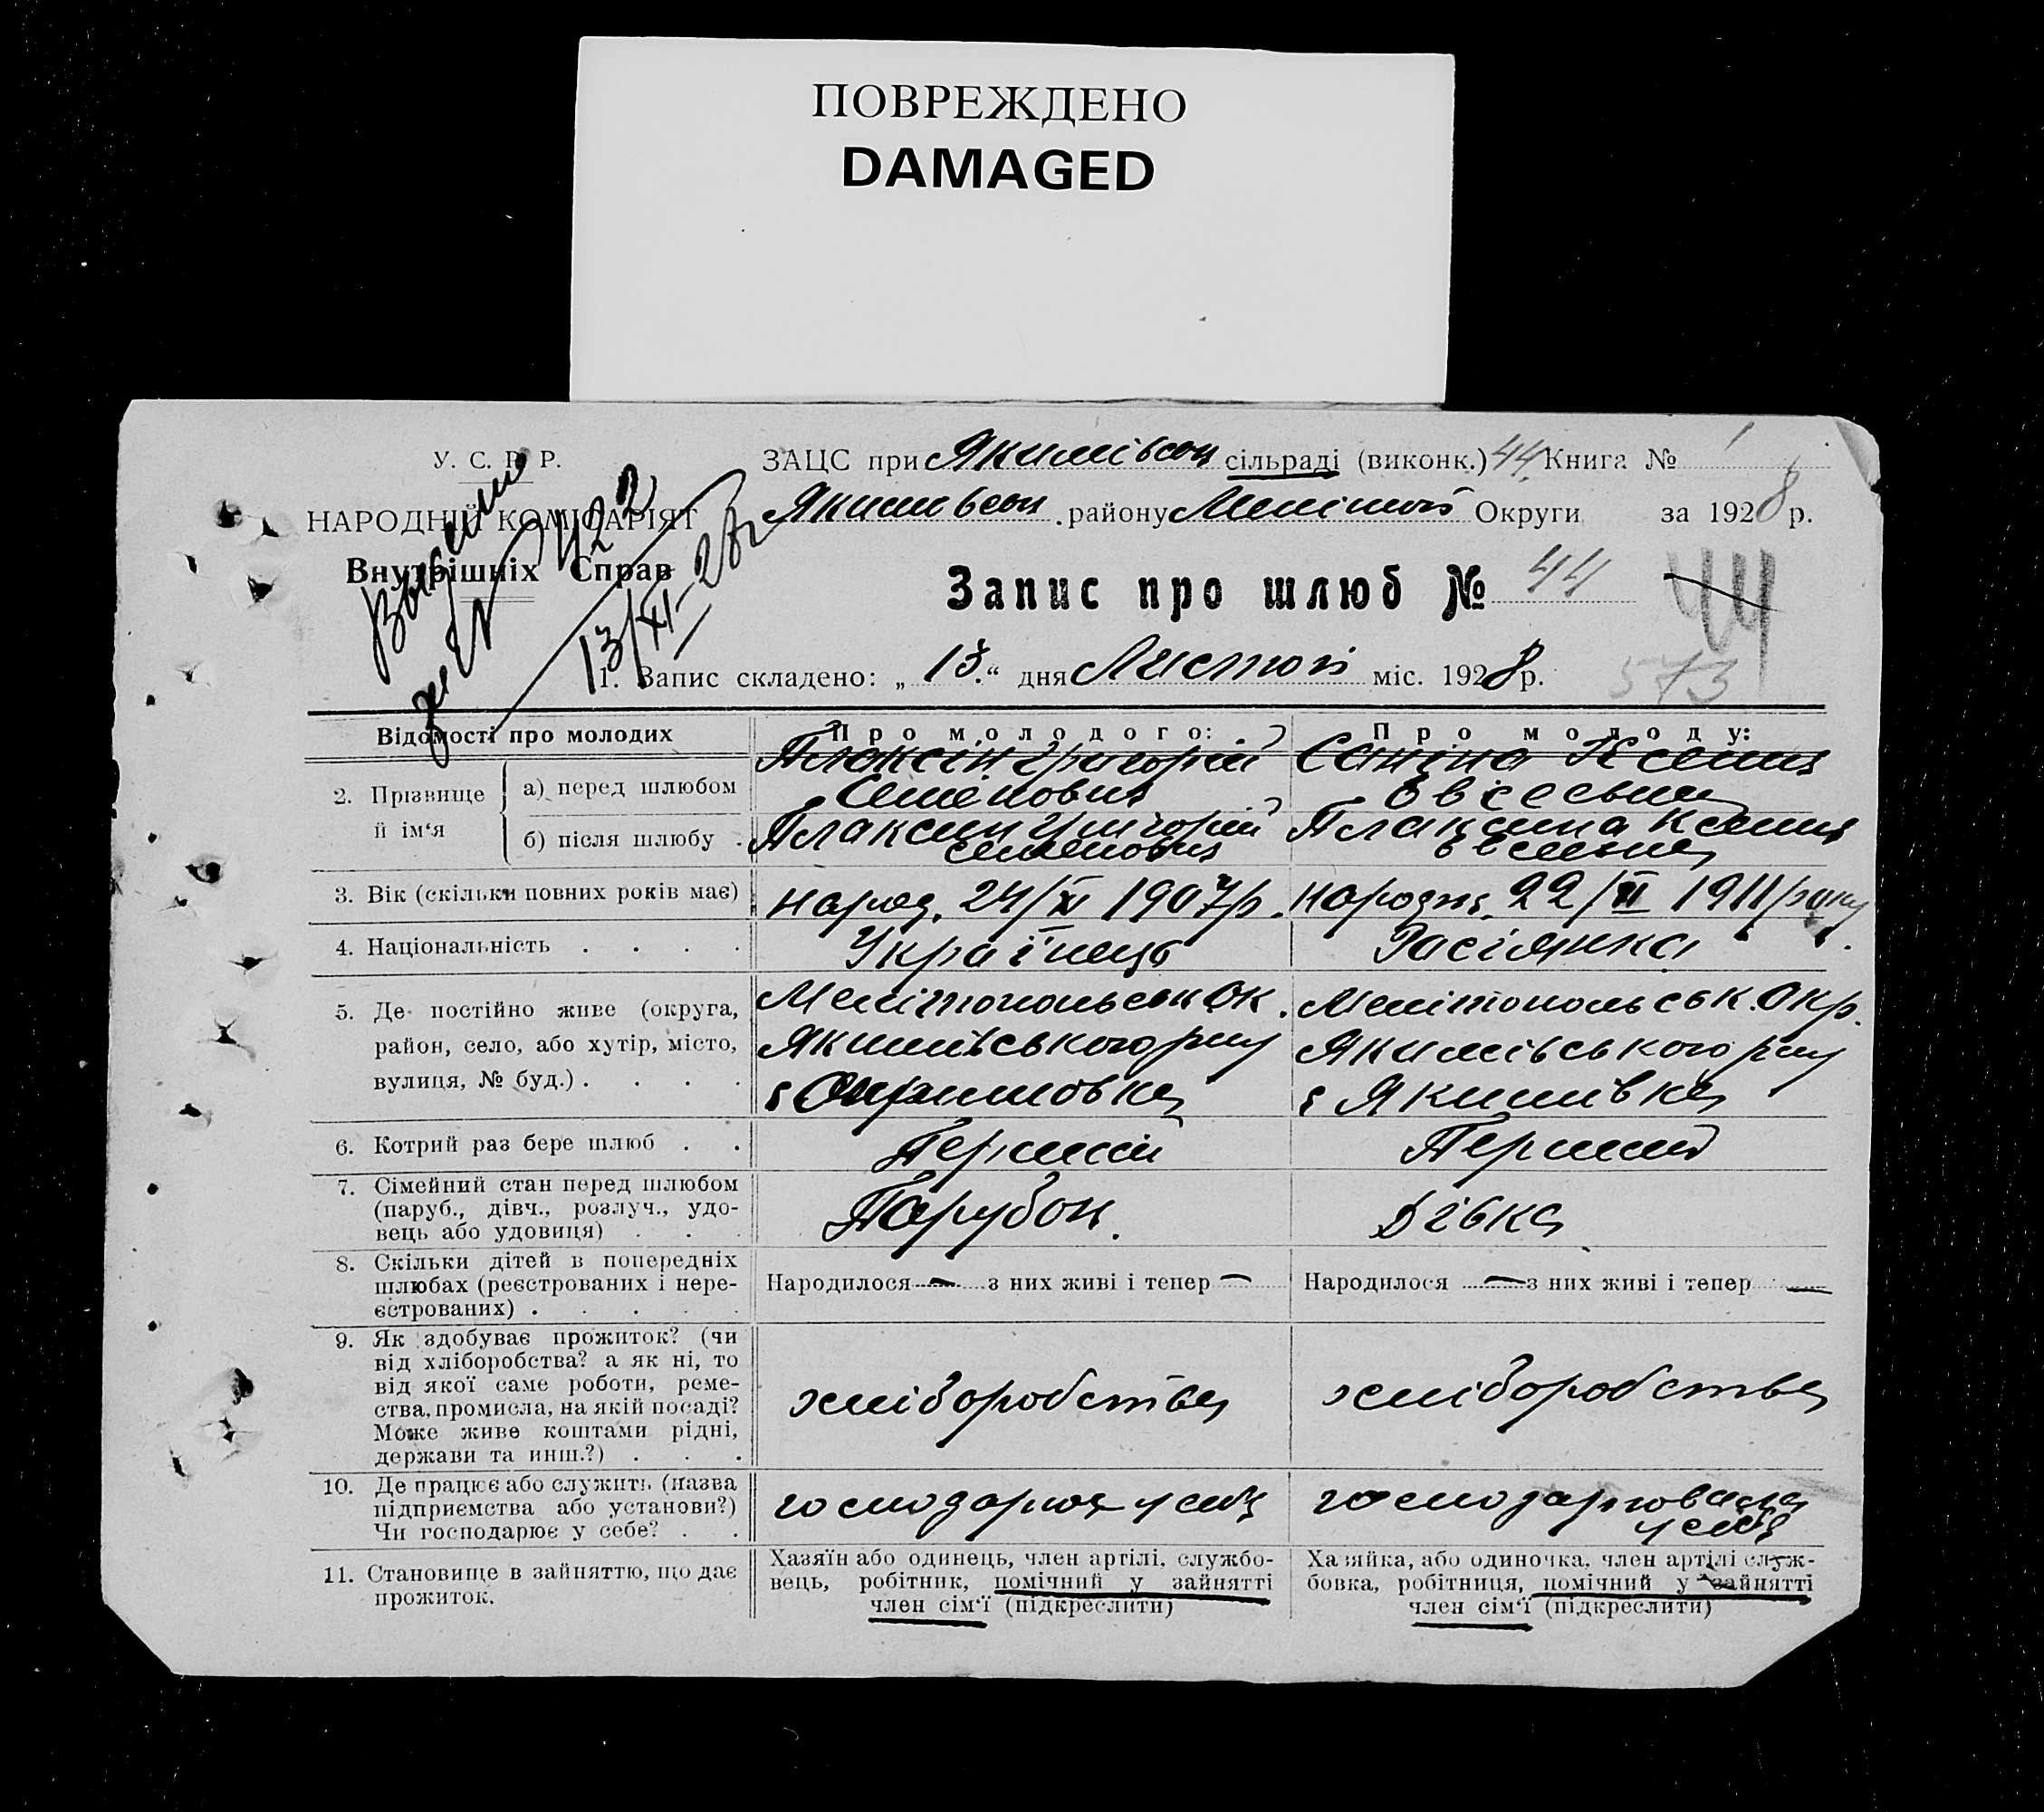 ПОВРЕЖДЕНО
DAMAGED
У. С. Р. Р.
НАРОДНІЙ КОМІСАРІЯТ
Внутрішніх Справ
422
13/XI-28р
ЗАЦС при Якимівськ сільраді (виконк.) 44 Книга № 1
Якимівськ. району Меліт Округи за 1928 р.
Запис про шлюб № 44 44
573
1. Запис складено: „13.“ дня Листоп міс. 1928 р.
Відомості про молодих
Про молодого:
Про молоду:
2. Прізвище й ім‘я
а) перед шлюбом
Плаксін Григорій
Семенович
Саніна Ксенія
Евсеевна
б) після шлюбу .
Плаксин Григорій
Семенович
Плаксина Ксенія
3. Вік (скільки повних років має)
народ. 24/XI 1907р.
народж. 22/II 1911 року
4. Національність . . . .
Українець
Расіянка
5. Де постійно живе (округа,
район, село, або хутір, місто,
вулиця, № буд.) . . . .
Мелітопольськ Ок.
Якимівського р-ну
Мелітопольськ. Окр.
Якимівського р-ну
с Якимівка
6. Котрий раз бере шлюб . .
Перший
Перший
7. Сімейний стан перед шлюбом
(паруб., дівч., розлуч., удо-
вець або удовиця) . . .
Парубок.
Дівка
8. Скільки дітей в попередніх
шлюбах (реєстрованих і нере-
єстрованих) . . . . .
Народилося — з них живі і тепер —
Народилося — з них живі і тепер —
9. Як здобуває прожиток? (чи
від хліборобства? а як ні, то
від якої саме роботи, реме-
ства, промисла, на якій посаді?
Може живе коштами рідні,
держави та инш.?) . . .
хліборобства
хліборобства
10. Де працює або служить (назва
підприємства або установи?)
Чи господарює у себе? . .
господарює у себе
господарювала
у себе
11. Становище в зайняттю, що дає
прожиток.
Хазяїн або одинець, член артілі, службо-
вець, робітник, помічний у зайнятті
член сім‘ї (підкреслити)
Хазяйка, або одиночка, член артілі служ-
бовка, робітниця, помічний у зайнятті
член сім‘ї (підкреслити)